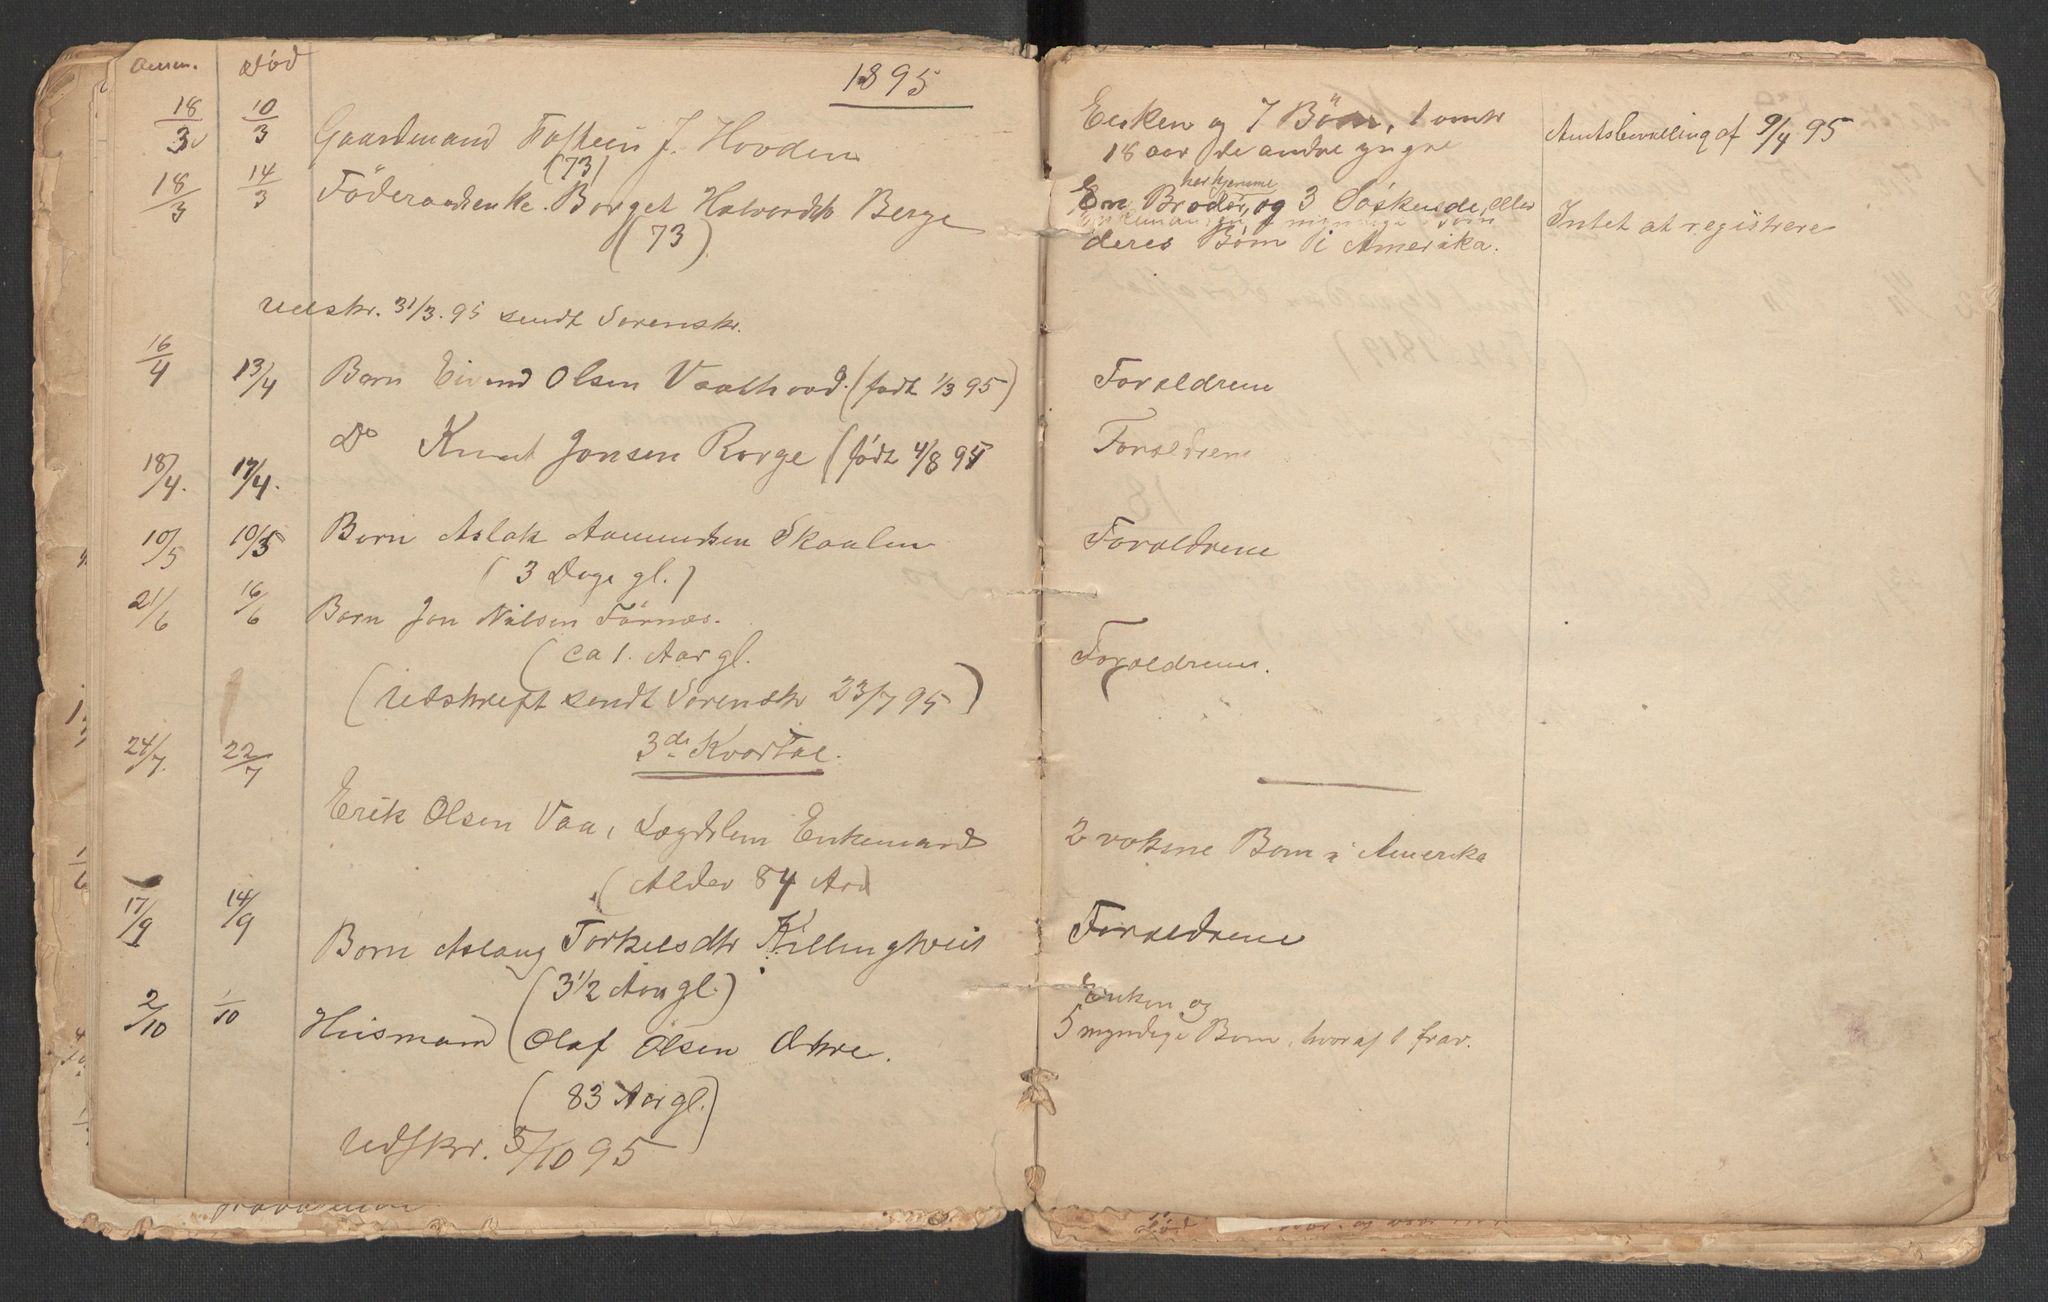 Anm. Død
1895
18/3 10/3 Gaardmand Tosten J. Hovden
(73)
Enken og 7 Børn, 1 omtr
18 aar de andre yngre
Amtsbevilling af 9/4 95
18/3 14/3 Føderaadsenke Borget Halvordsdtr Berge
(73)
herhjemme
En Broder, og 3 Søskende, eller
deres Børn i Amerika.
Intet at registrere
Udskr. 31/3.95 sendt Sorenskr.
16/4 13/4 Barn Eivind Olsen Vaathoad (født 1/3 95)
Forældrene
18/4. 17/4. Do Knut Jonsen Rorge (født 4/8 94
Forældrene
10/5 10/5 Barn Aslak Aamundsen Skaalen
(3 Dage gl.)
Forældrene
21/6 16/6 Barn Jon Nilsen Førnæs.
(ca 1. Aar gl.
Forældrene.
(Udskrift sendt Sorenskr 23/7 95)
3de Kvartal.
24/7. 22/7
Erik Olsen Vaa, Lægdslem Enkemand
(Alder 84 Aar)
2 voksne Børn i Amerika
17/9 14/9 Barn Aslaug Torkelsdtr Killingtveit
(3 1/2 Aar gl.)
Forældrene
2/10 1/10 Husmand Olaf Olsen
(83 Aar gl.)
Enken og
5 myndige Børn, hvoraf 1 frav.
Udskr. 5/10 95